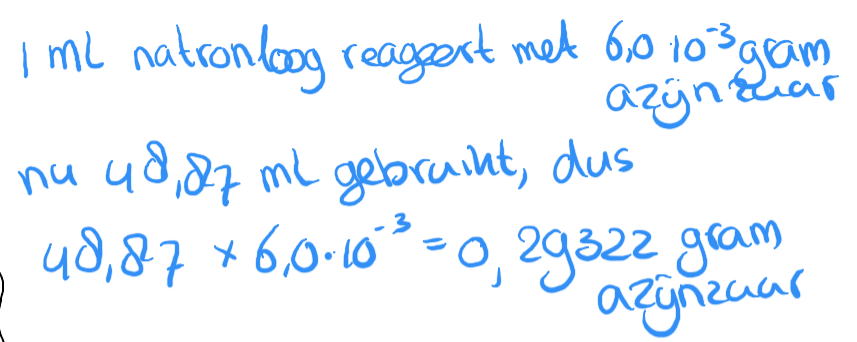 1 ml natronloog reageert met 6,0 · 10⁻³ gram
azijnzuur
nu 48,87 ml gebruikt, dus
48,87 × 6,0 · 10⁻³ = 0,29322 gram
azijnzuur